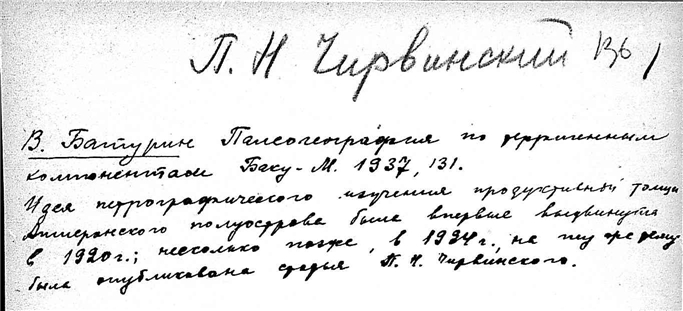 П. Н Чирвинский 136 /
В. Батурин Палеогеография по терригенным
компонентам Баку - М. 1937, 131.
Идея петрографического изучения продуктивной толщи
Апшеронского полуострова была впервые выдвинута
в 1920 г.; несколько позже, в 1924 г., на ту же тему
была опубликована статья П. Н. Чирвинского.